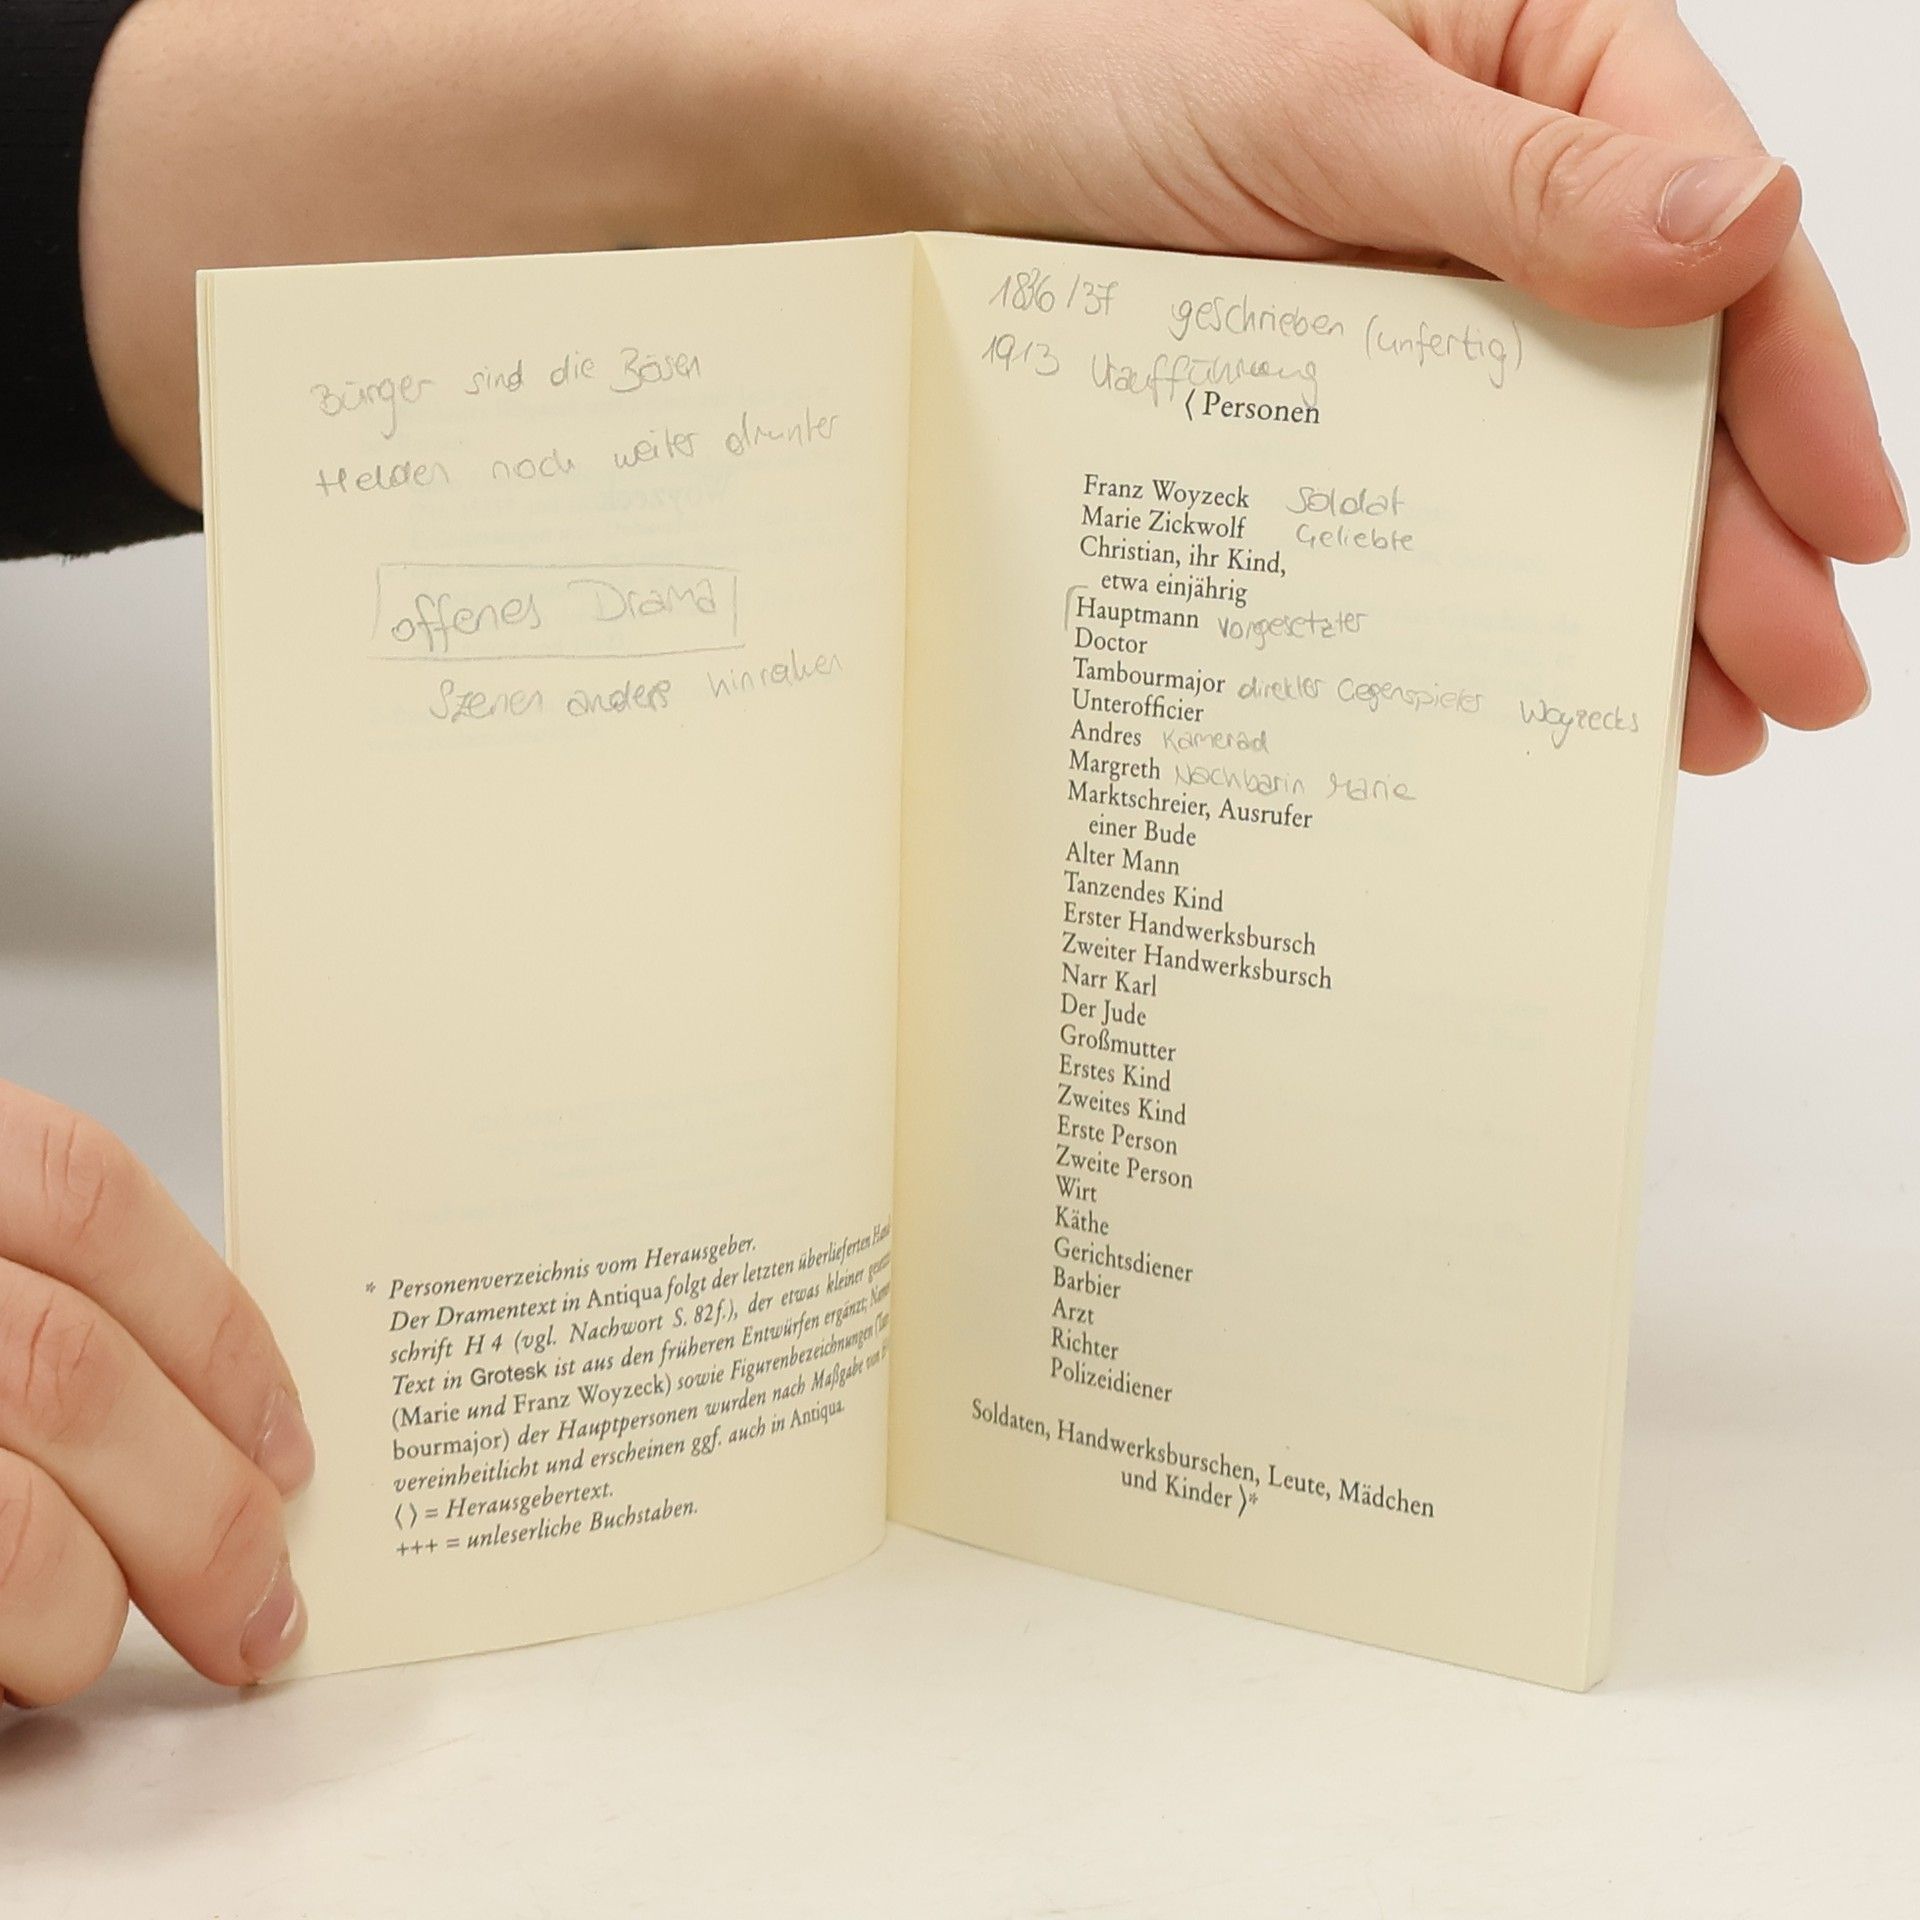 Bürger sind die Bösen
Helden noch weiter drunter
offenes Drama
Szenen anders hinreihen
* Personenverzeichnis vom Herausgeber.
Der Dramentext in Antiqua folgt der letzten überlieferten Hand-
schrift H 4 (vgl. Nachwort S. 82 f.), der etwas kleiner gesetzte
Text in Grotesk ist aus den früheren Entwürfen ergänzt; Namen
(Marie und Franz Woyzeck) sowie Figurenbezeichnungen (Tam-
bourmajor) der Hauptpersonen wurden nach Maßgabe von
vereinheitlicht und erscheinen ggf. auch in Antiqua.
⟨ ⟩ = Herausgebertext.
+++ = unleserliche Buchstaben.
1836/37 geschrieben (unfertig)
1913 Uraufführung
⟨ Personen
Franz Woyzeck Soldat
Marie Zickwolf Geliebte
Christian, ihr Kind,
etwa einjährig
Hauptmann Vorgesetzter
Doctor
Tambourmajor direkter Gegenspieler Woyzecks
Unterofficier
Andres Kamerad
Margreth Nachbarin Marie
Marktschreier, Ausrufer
einer Bude
Alter Mann
Tanzendes Kind
Erster Handwerksbursch
Zweiter Handwerksbursch
Narr Karl
Der Jude
Großmutter
Erstes Kind
Zweites Kind
Erste Person
Zweite Person
Wirt
Käthe
Gerichtsdiener
Barbier
Arzt
Richter
Polizeidiener
Soldaten, Handwerksburschen, Leute, Mädchen
und Kinder ⟩*